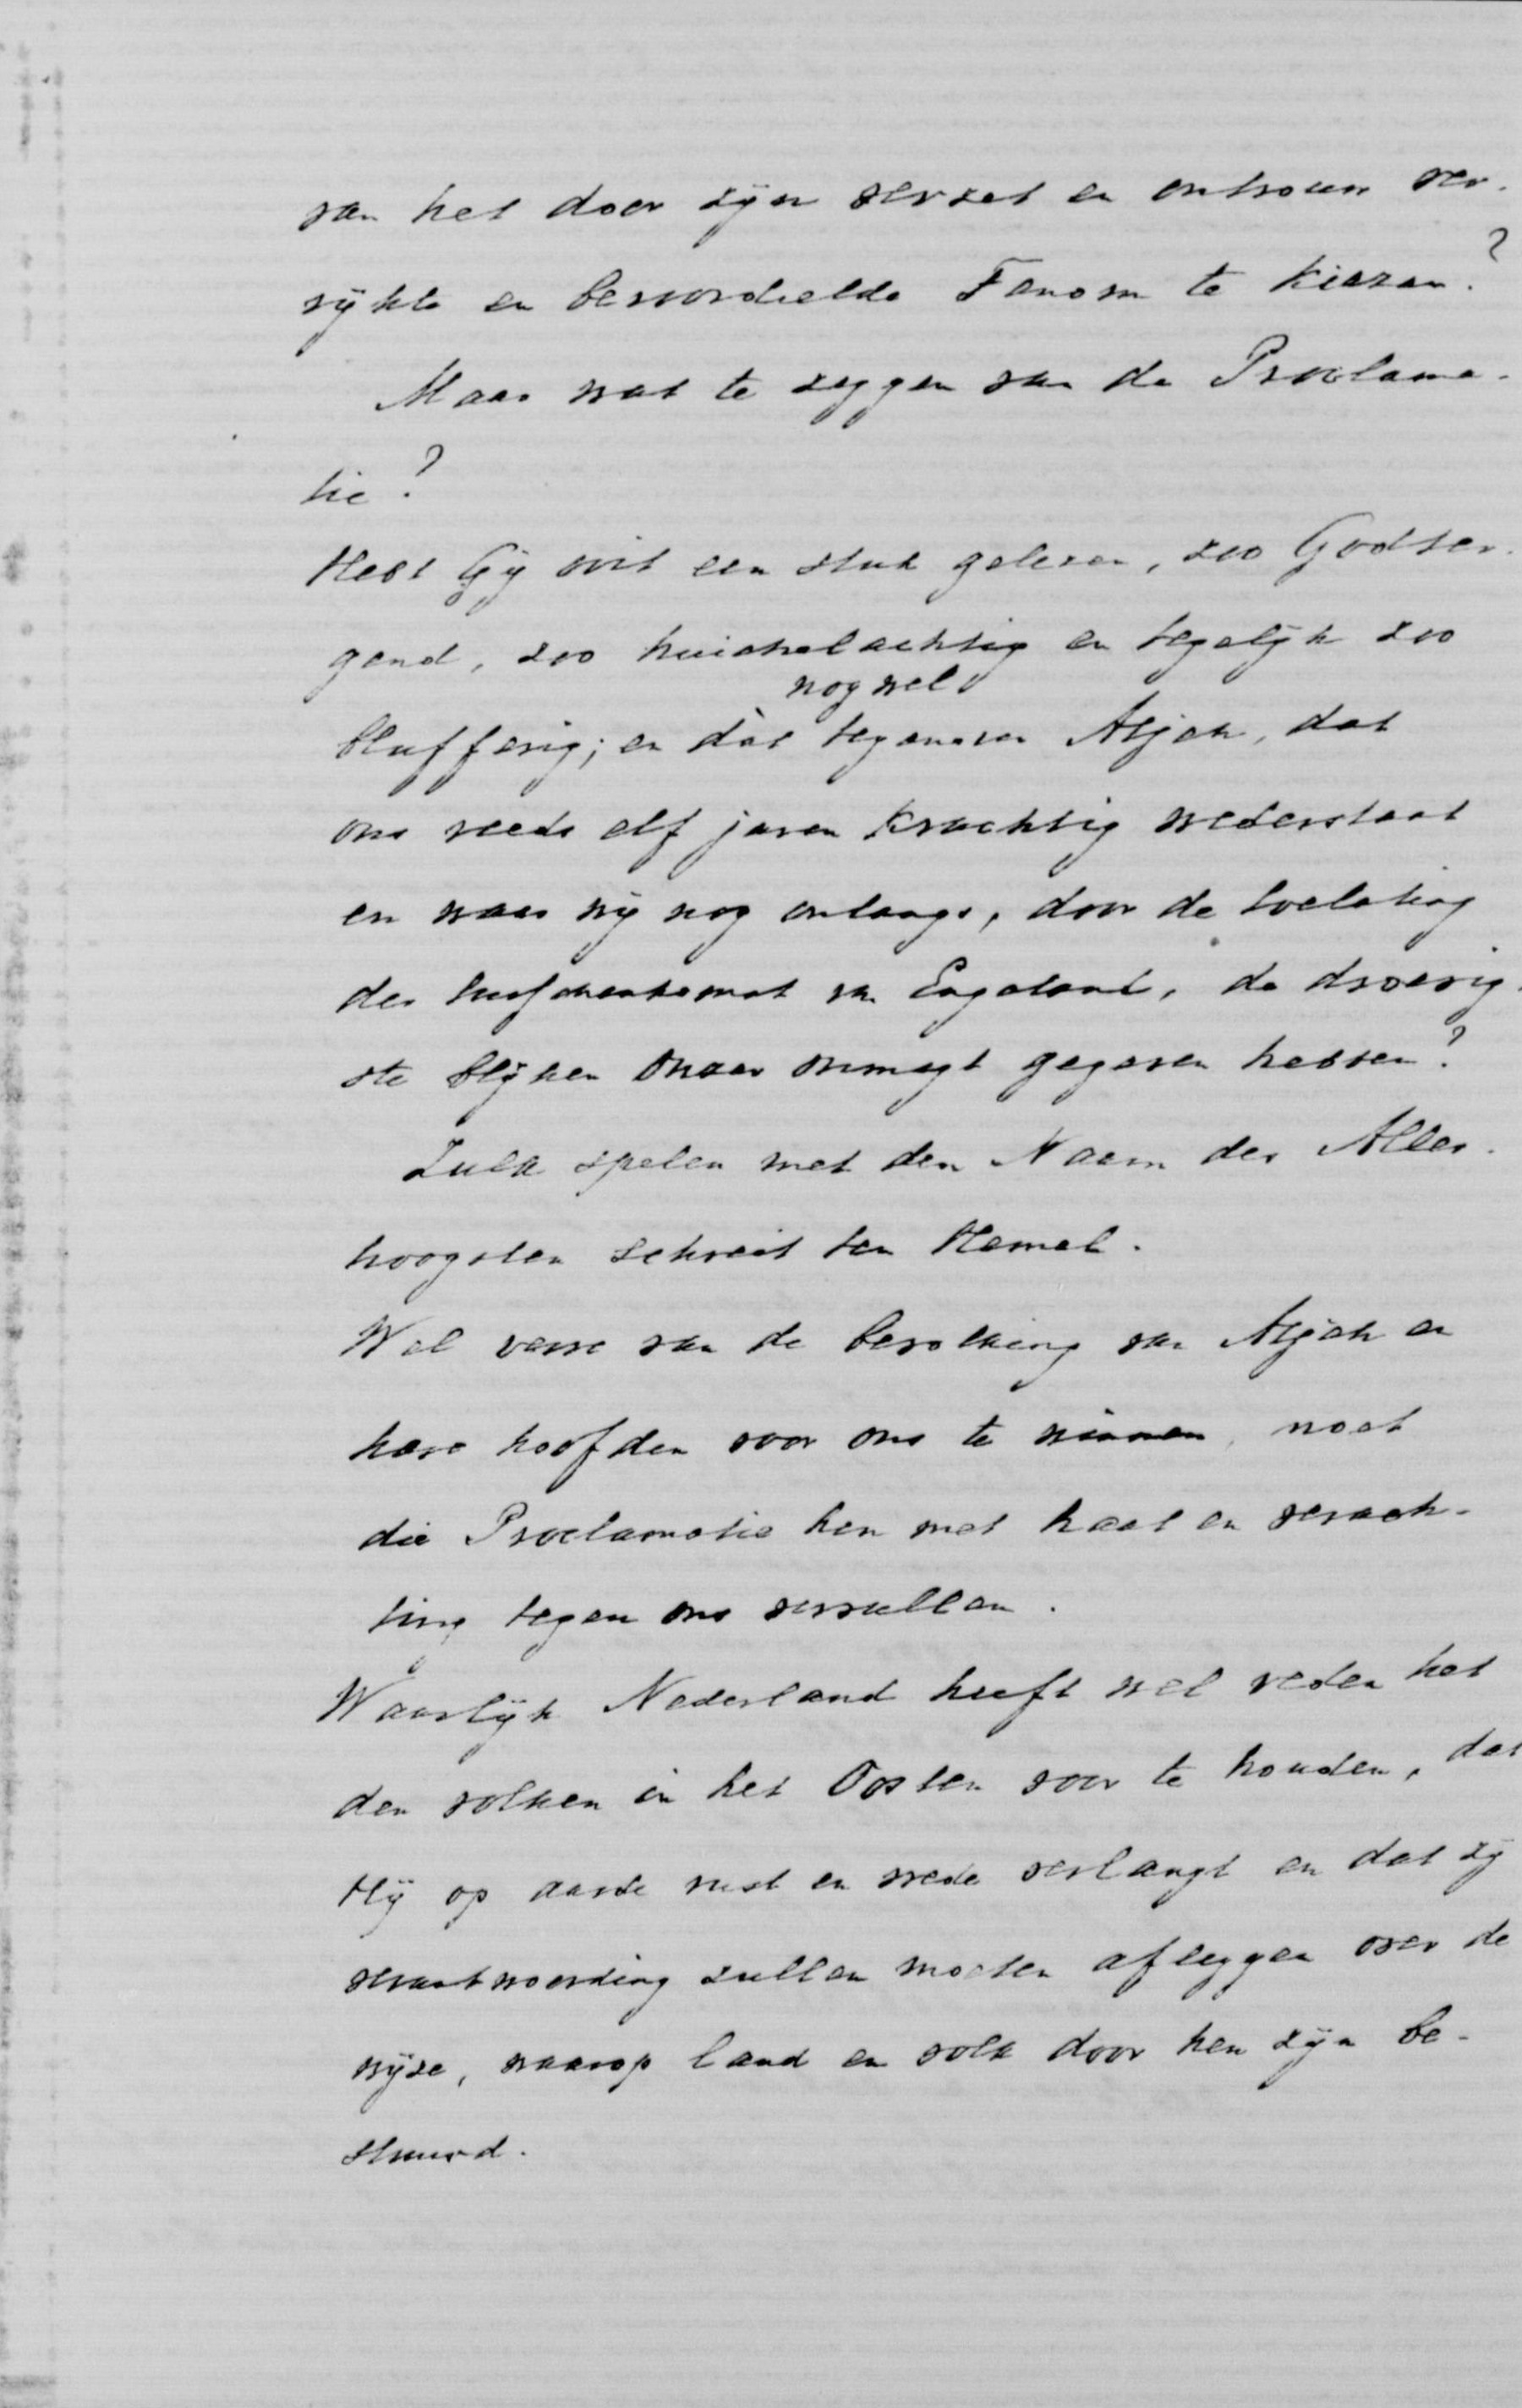 van het door zijn verzet en ontrouw ver-
rijkte en bevoordeelde Tenom te kiezen?
Maar wat te zeggen van de Proclama-
tie?
Hebt Gij ooit een stuk gelezen, zoo Godter-
gend, zoo huichelachtig en tegelijk zoo
nog wel
blufferig; en dàt tegenover Atjeh, dat
ons reeds elf jaren krachtig wederstaat
en waar wij nog onlangs, door de toelating
der tusschenkomst van Engeland, de droevig-
ste blijken onzer onmagt gegeven hebben?
Zulk spelen met den Naam des Aller-
hoogsten schreit ten Hemel.
Wel verre van de bevolking van Atjeh en
hare hoofden voor ons te winnen, moet
die Proclamatie hen met haat en verach-
ting tegen ons vervullen.
Waarlijk Nederland heeft wel reden het
den volken in het Oosten voor te houden, dat
Hij op aarde rust en vrede verlangt en dat zij
verantwoording zullen moeten afleggen over de
wijze, waarop land en volk door hen zijn be-
stuurd.